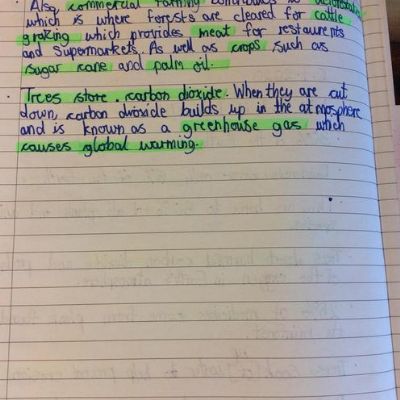 Also, commercial farming contributes to deforestation
which is where forests are cleared for cattle
grazing which provides meat for restaurents
and supermarkets. As well as crops such as
sugar cane and palm oil.
Trees store carbon dioxide. When they are cut
down, carbon dioxide builds up in the atmosphere
and is known as a greenhouse gas which
causes global warming.